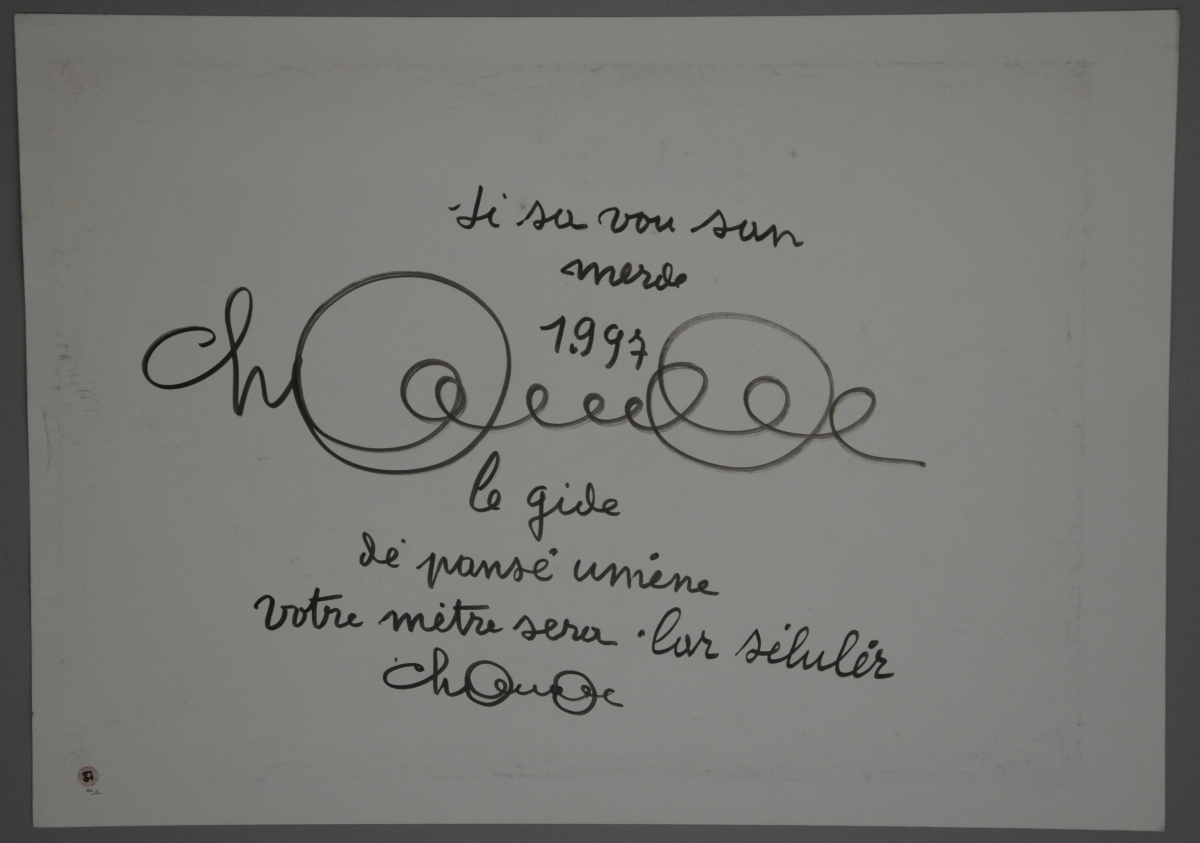 si sa vou san
merde
1.997
chouade
le gide
dè pansé umène
votre mètre sera lar sélulér
chouade